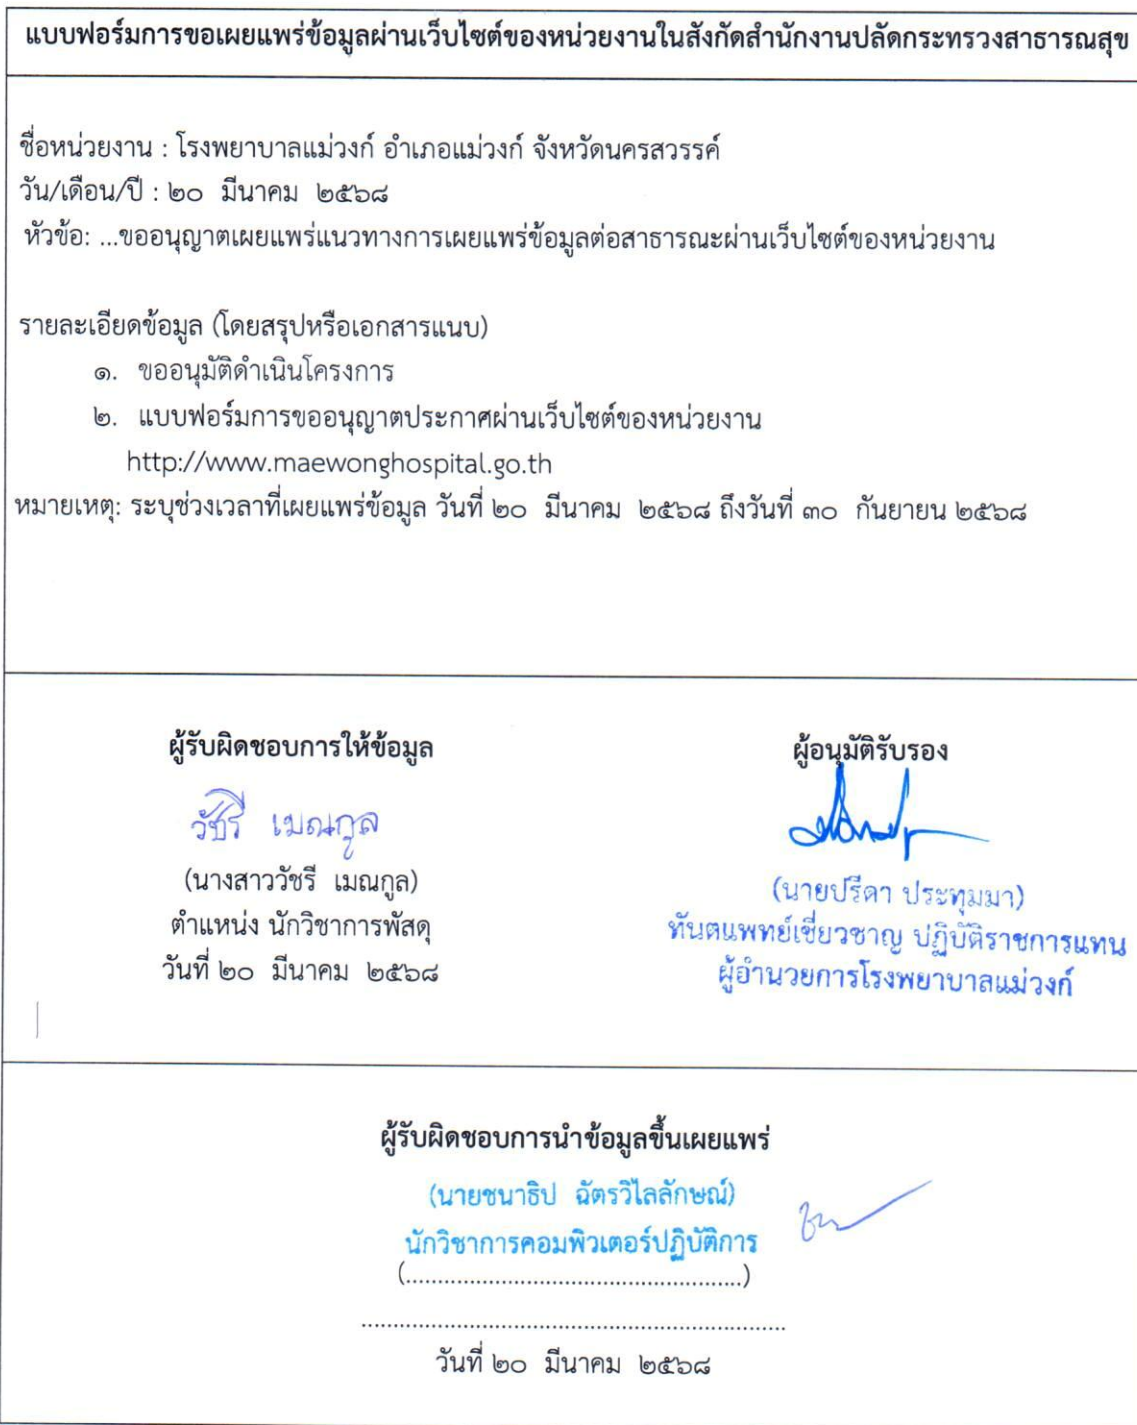 แบบฟอร์มการขอเผยแพร่ข้อมูลผ่านเว็บไซต์ของหน่วยงานในสังกัดสำนักงานปลัดกระทรวงสาธารณสุข
ชื่อหน่วยงาน : โรงพยาบาลแม่วงก์ อำเภอแม่วงก์ จังหวัดนครสวรรค์
วัน/เดือน/ปี : ๒๐ มีนาคม ๒๕๖๘
หัวข้อ: ...ขออนุญาตเผยแพร่แนวทางการเผยแพร่ข้อมูลต่อสาธารณะผ่านเว็บไซต์ของหน่วยงาน
รายละเอียดข้อมูล (โดยสรุปหรือเอกสารแนบ)
๑. ขออนุมัติดำเนินโครงการ
๒. แบบฟอร์มการขออนุญาตประกาศผ่านเว็บไซต์ของหน่วยงาน
http://www.maewonghospital.go.th
หมายเหตุ: ระบุช่วงเวลาที่เผยแพร่ข้อมูล วันที่ ๒๐ มีนาคม ๒๕๖๘ ถึงวันที่ ๓๐ กันยายน ๒๕๖๘
ผู้รับผิดชอบการให้ข้อมูล
วัชรี เมณกูล
(นางสาววัชรี เมณกูล)
ตำแหน่ง นักวิชาการพัสดุ
วันที่ ๒๐ มีนาคม ๒๕๖๘
ผู้อนุมัติรับรอง
(นายปรีดา ประทุมมา)
ทันตแพทย์เชี่ยวชาญ ปฏิบัติราชการแทน
ผู้อำนวยการโรงพยาบาลแม่วงก์
ผู้รับผิดชอบการนำข้อมูลขึ้นเผยแพร่
(นายชนาธิป ฉัตรวิไลลักษณ์)
นักวิชาการคอมพิวเตอร์ปฏิบัติการ
(....................................................)
..................................................................
วันที่ ๒๐ มีนาคม ๒๕๖๘